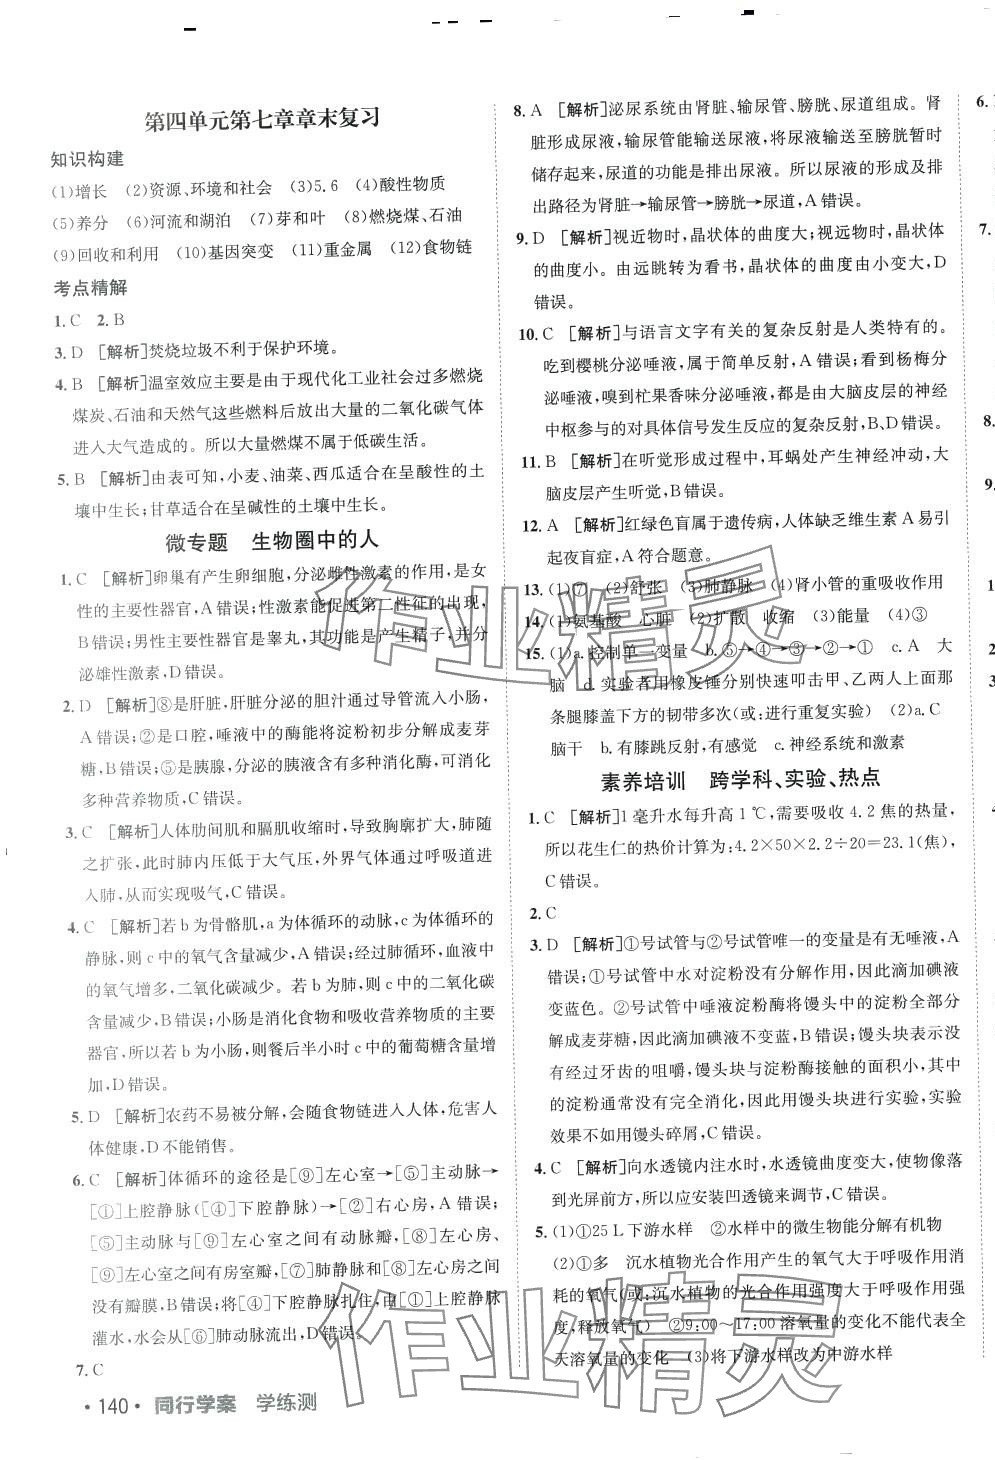 第四单元第七章章末复习
知识构建
(1)增长　(2)资源、环境和社会　(3)5.6　(4)酸性物质
(5)养分　(6)河流和湖泊　(7)芽和叶　(8)燃烧煤、石油
(9)回收和利用　(10)基因突变　(11)重金属　(12)食物链
考点精解
1. C　2. B
3. D　[解析]焚烧垃圾不利于保护环境。
4. B　[解析]温室效应主要是由于现代化工业社会过多燃烧
煤炭、石油和天然气这些燃料后放出大量的二氧化碳气体
进入大气造成的。所以大量燃煤不属于低碳生活。
5. B　[解析]由表可知,小麦、油菜、西瓜适合在呈酸性的土
壤中生长;甘草适合在呈碱性的土壤中生长。
微专题　生物圈中的人
1. C　[解析]卵巢有产生卵细胞,分泌雌性激素的作用,是女
性的主要性器官,A错误;性激素能促进第二性征的出现,
B错误;男性主要性器官是睾丸,其功能是产生精子,并分
泌雄性激素,D错误。
2. D　[解析]⑧是肝脏,肝脏分泌的胆汁通过导管流入小肠,
A错误;②是口腔,唾液中的酶能将淀粉初步分解成麦芽
糖,B错误;⑤是胰腺,分泌的胰液含有多种消化酶,可消化
多种营养物质,C错误。
3. C　[解析]人体肋间肌和膈肌收缩时,导致胸廓扩大,肺随
之扩张,此时肺内压低于大气压,外界气体通过呼吸道进
入肺,从而实现吸气,C错误。
4. C　[解析]若b为骨骼肌,a为体循环的动脉,c为体循环的
静脉,则c中的氧气含量减少,A错误;经过肺循环,血液中
的氧气增多,二氧化碳减少。若b为肺,则c中的二氧化碳
含量减少,B错误;小肠是消化食物和吸收营养物质的主要
器官,所以若b为小肠,则餐后半小时c中的葡萄糖含量增
加,D错误。
5. D　[解析]农药不易被分解,会随食物链进入人体,危害人
体健康,D不能销售。
6. C　[解析]体循环的途径是[⑨]左心室→[⑤]主动脉→
[①]上腔静脉([④]下腔静脉)→[②]右心房,A错误;
[⑤]主动脉与[⑨]左心室之间有动脉瓣,[⑧]左心房、
[⑨]左心室之间有房室瓣,[⑦]肺静脉和[⑧]左心房之间
没有瓣膜,B错误;将[④]下腔静脉扎住,由[①]上腔静脉
灌水,水会从[⑥]肺动脉流出,D错误。
7. C
·140·　同行学案　学练测
8. A　[解析]泌尿系统由肾脏、输尿管、膀胱、尿道组成。肾
脏形成尿液,输尿管能输送尿液,将尿液输送至膀胱暂时
储存起来,尿道的功能是排出尿液。所以尿液的形成及排
出路径为肾脏→输尿管→膀胱→尿道,A错误。
9. D　[解析]视近物时,晶状体的曲度大;视远物时,晶状体
的曲度小。由远眺转为看书,晶状体的曲度由小变大,D
错误。
10. C　[解析]与语言文字有关的复杂反射是人类特有的。
吃到樱桃分泌唾液,属于简单反射,A错误;看到杨梅分
泌唾液,嗅到杧果香味分泌唾液,都是由大脑皮层的神经
中枢参与的对具体信号发生反应的复杂反射,B、D错误。
11. B　[解析]在听觉形成过程中,耳蜗处产生神经冲动,大
脑皮层产生听觉,B错误。
12. A　[解析]红绿色盲属于遗传病,人体缺乏维生素A易引
起夜盲症,A符合题意。
13. (1)⑦　(2)舒张　(3)肺静脉　(4)肾小管的重吸收作用
14. (1)氨基酸　心脏　(2)扩散　收缩　(3)能量　(4)③
15. (1)a. 控制单一变量　b. ⑤→④→③→②→①　c. A　大
脑　d. 实验者用橡皮锤分别快速叩击甲、乙两人上面那
条腿膝盖下方的韧带多次(或:进行重复实验)　(2)a. C
脑干　b. 有膝跳反射,有感觉　c. 神经系统和激素
素养培训　跨学科、实验、热点
1. C　[解析]1毫升水每升高1℃,需要吸收4.2焦的热量,
所以花生仁的热价计算为:4.2×50×2.2÷20=23.1(焦),
C错误。
2. C
3. D　[解析]①号试管与②号试管唯一的变量是有无唾液,A
错误;①号试管中水对淀粉没有分解作用,因此滴加碘液
变蓝色。②号试管中唾液淀粉酶将馒头中的淀粉全部分
解成麦芽糖,因此滴加碘液不变蓝,B错误;馒头块表示没
有经过牙齿的咀嚼,馒头与淀粉酶接触的面积小,其中
的淀粉通常没有完全消化,因此用馒头块进行实验,实验
效果不如用馒头碎屑,C错误。
4. C　[解析]向水透镜内注水时,水透镜曲度变大,使物像落
到光屏前方,所以应安装凹透镜来调节,C错误。
5. (1)①25 L下游水样　②水样中的微生物能分解有机物
(2)①多　沉水植物光合作用产生的氧气大于呼吸作用消
耗的氧气(或:沉水植物的光合作用强度大于呼吸作用强
度,释放氧气)　②9:00~17:00溶氧量的变化不能代表全
天溶氧量的变化　(3)将下游水样改为中游水样
6.
7.
8.
9.
1.
2.
3.
4.
作业精灵
作业精灵